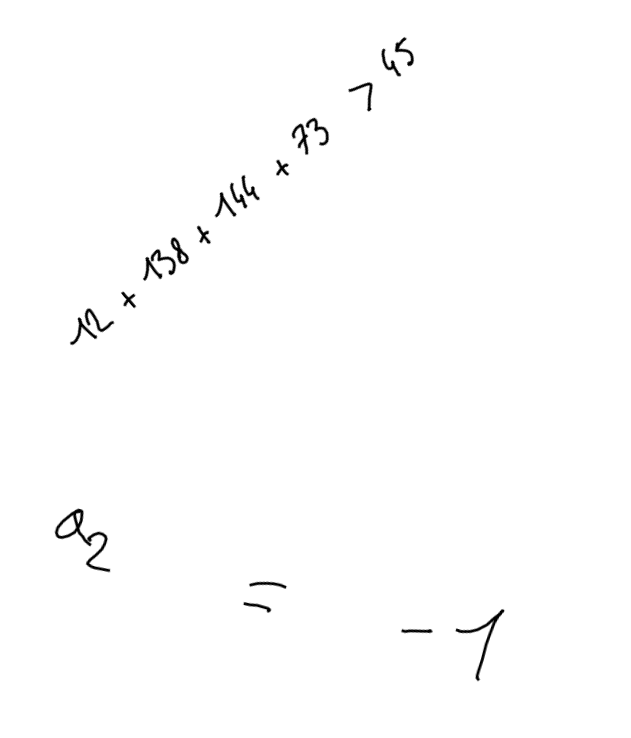 12 + 138 + 144 + 73 > 45
a₂ = -1